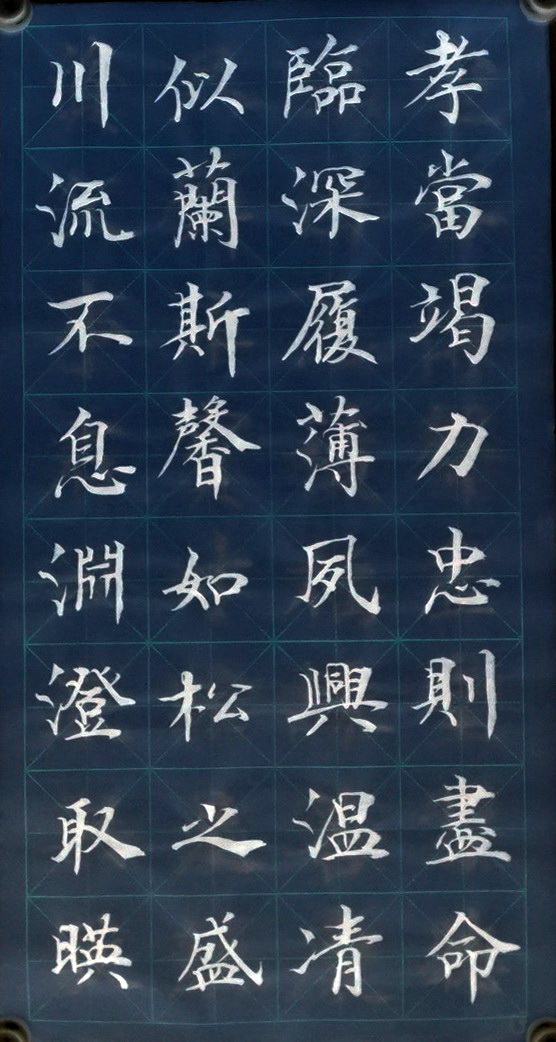 孝當竭力忠則盡命
臨深履薄夙興温凊
似蘭斯馨如松之盛
川流不息淵澄取暎